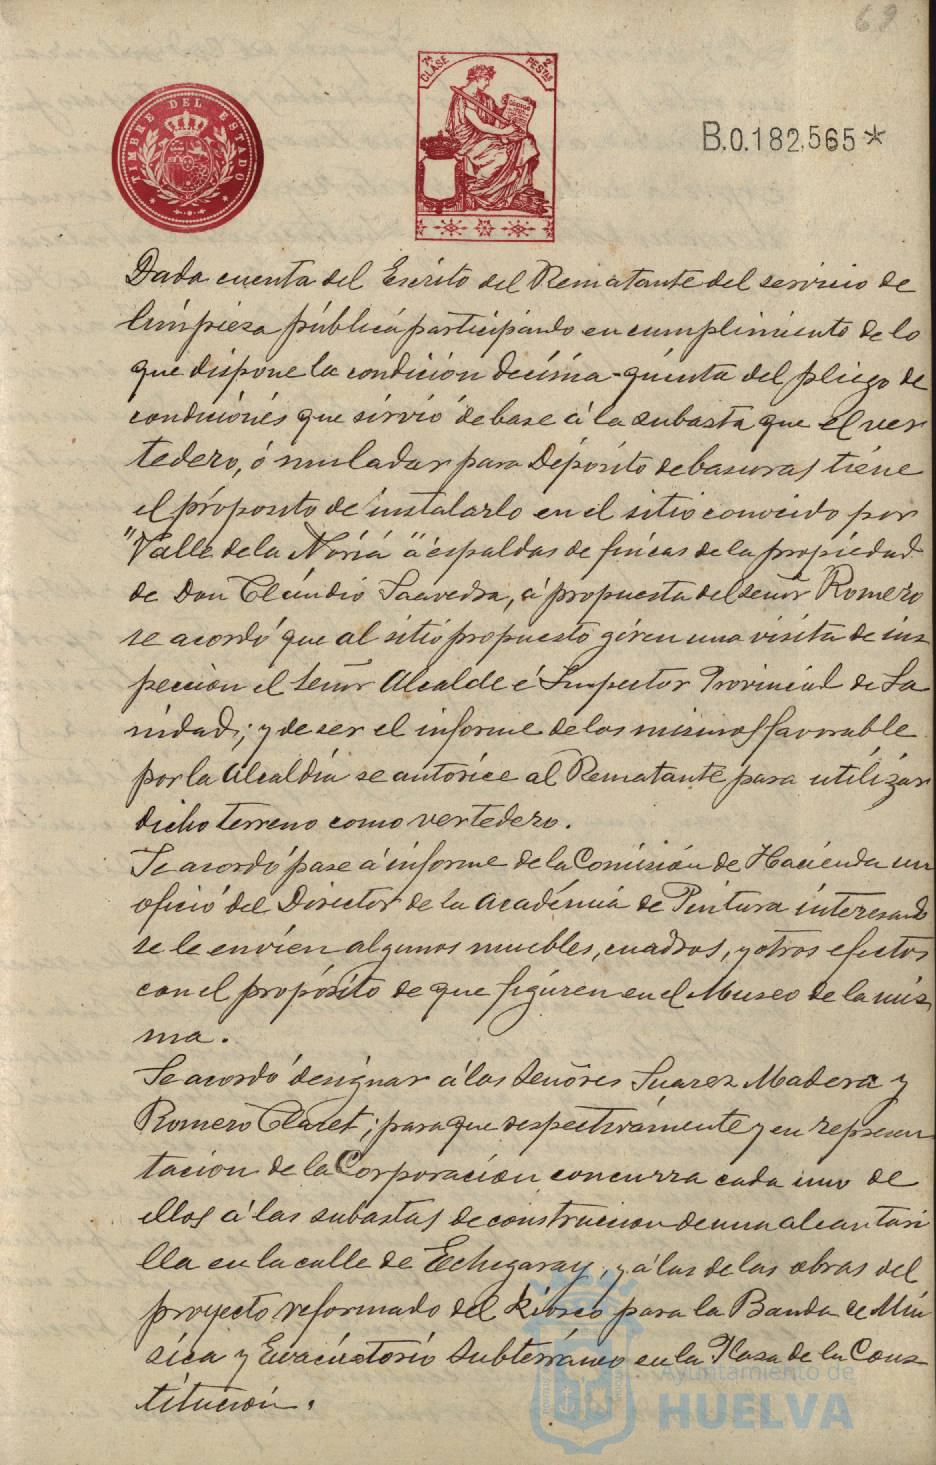 69
TIMBRE DEL ESTADO
7ª CLASE
2 PESTAS
B.0.182,565*
Dada cuenta del Escrito del Rematante del servicio de
limpieza pública participando en cumplimiento de lo
que dispone la condición décima-quinta del pliego de
condiciónes que sirvió de base á la subasta que el ver
tedero, ó muladar para Depósito de basuras tiene
el próposito de instalarlo en el sitio conocido por
"Valle de la Noria" á espaldas de fincas de la propiedad
de Don Claúdio Saavedra, á propuesta del señor Romero
se acordó que al sitio propuesto giren una visita de ins
pección el señor Alcalde é Inspector Provincial de Sa
nidad; y de ser el informe de los mismos favorable
por la Alcaldía se autorice al Rematante para utilizar
dicho terreno como vertedero.
Se acordó pase á informe de la Comisión de Hacienda un
oficio del Director de la Académia de Pintura interesando
se le envíen algunos muebles, cuadros, y otros efectos
con el propósito de que figúren en el Museo de la mis
ma.
Se acordó designar á los Señores Suarez Madera y
Romero Claret; para que respectivamente y en represen
tación de la Corporación concurra cada uno de
ellos á las subastas de construccion de una alcantari
lla en la calle de Echegaray, y á las de las obras del
proyecto reformado del kiosco para la Banda de Mú
sica y Evacuatorio Subterráneo en la Plaza de la Cons
titución.
Ayuntamiento de
HUELVA